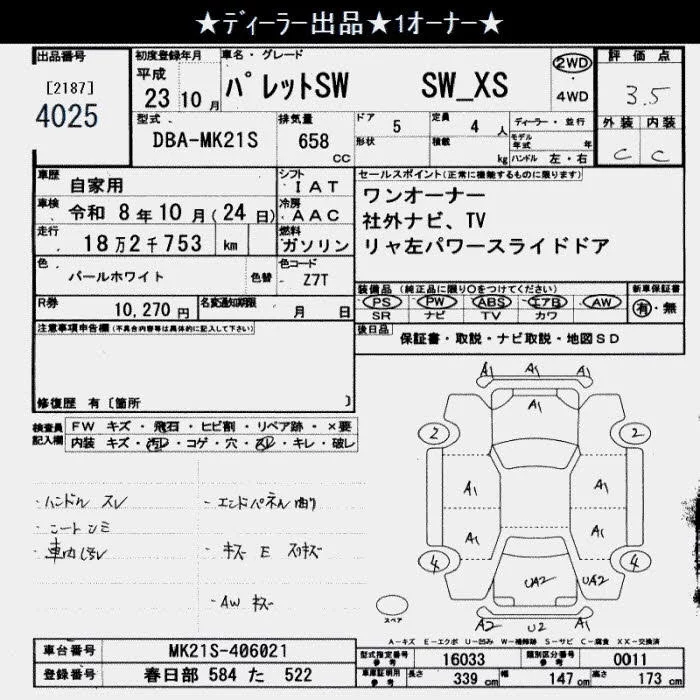 ★ディーラー出品★1オーナー★
出品番号
[2187]
4025
初度登録年月
平成
23 10月
車名・グレード
パレットSW SW_XS
2WD
4WD
評価点
3.5
型式
DBA-MK21S
排気量
658
CC
ドア
5
形状
定員
4 人
積載
kg
ディーラー・並行
モデル年式 年
ハンドル 左・右
外装 内装
C C
車歴
自家用
シフト
IAT
車検
令和 8年10月(24日)
冷房
AAC
走行
18万2千753 km
燃料
ガソリン
色
パールホワイト
色替
色コード
Z7T
R券
10,270円
名変通知期限
月 日
セールスポイント(正常に機能するものに限ります)
ワンオーナー
社外ナビ、TV
リヤ左パワースライドドア
装備品(純正品に限り○をつけてください)
新車保証書
PS PW ABS エアB AW
有・無
SR ナビ TV カワ
後日品
保証書・取説・ナビ取説・地図SD
注意事項申告欄(不具合内容等は具体的に記入して下さい)
修復歴 有[箇所 ]
検査員記入欄
FW キズ・飛石・ヒビ割・リペア跡・×要
内装 キズ・汚レ・コゲ・穴・スレ・キレ・破レ
・ハンドル スレ
・エンドパネル曲り
・シートシミ
・車内汚レ
・キズ E スリキズ
・AW キズ
A1 A1 A1
A1
2 2
A1 A1
A1 A1
4 4
UA2 UA2
スペア
A2 U2 A1
A-キズ E-エクボ U-凹み W-補修跡 S-サビ C-腐食 XX-交換済
車台番号
MK21S-406021
型式指定番号
参考
16033
類別区分番号
参考
0011
登録番号
春日部 584 た 522
車庫証明用
参考
長さ
339 cm
幅
147 cm
高さ
173 cm